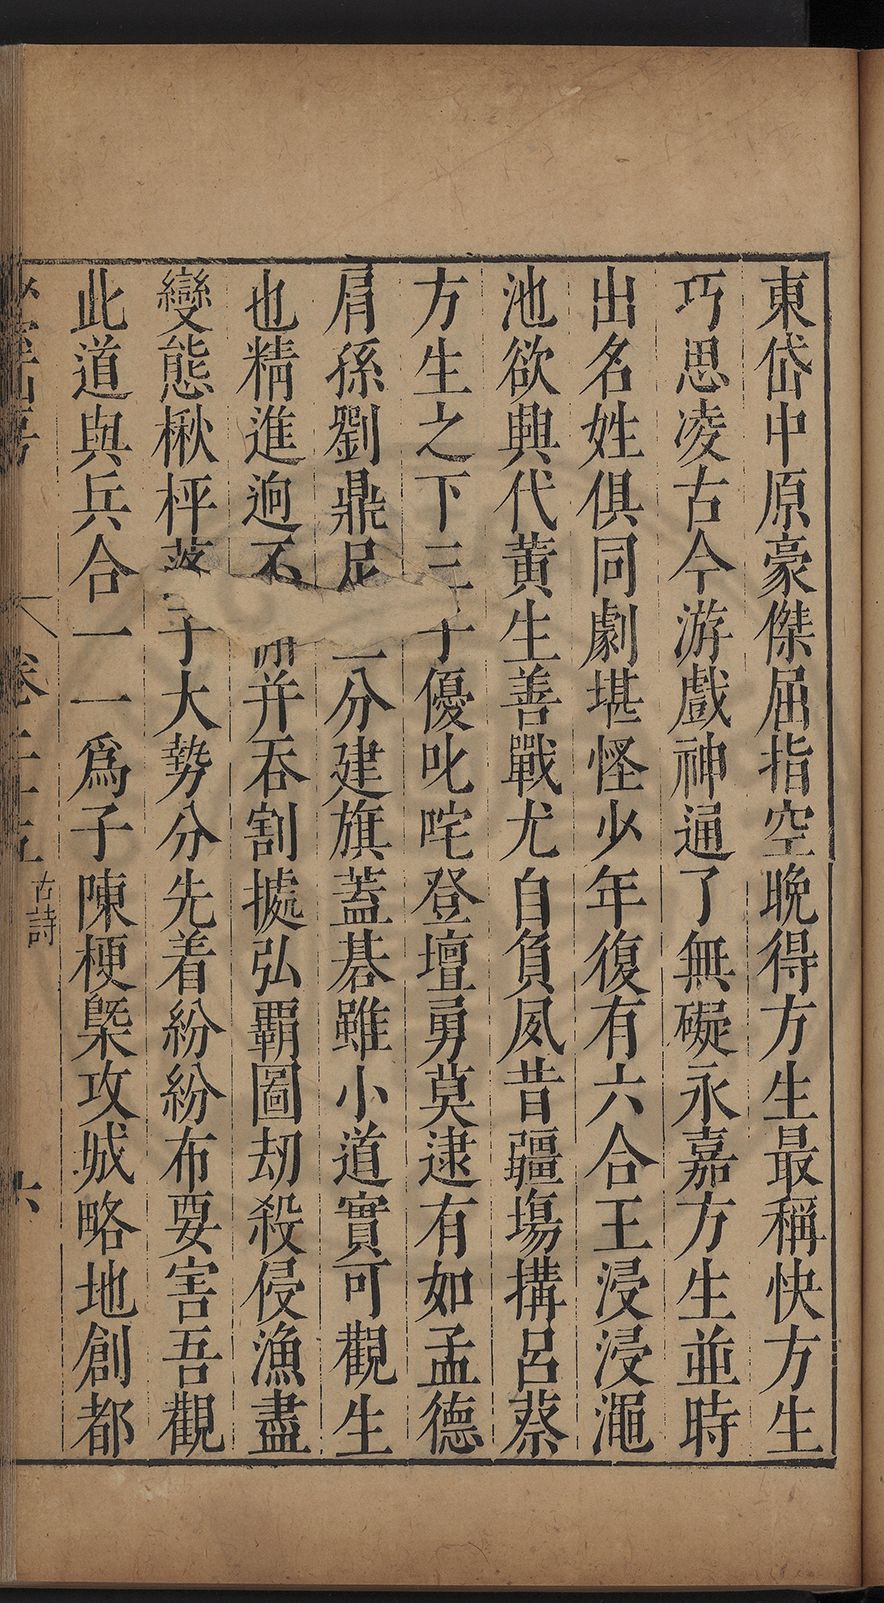 東岱中原豪傑屈指空晚得方生最稱快方生
巧思凌古今游戲神通了無礙永嘉方生並時
出名姓俱同劇堪怪少年復有六合王浸浸澠
池欲興代黃生善戰尤自負夙昔疆場搆呂蔡
方生之下三子優叱咤登壇勇莫逮有如孟德
肩孫劉鼎足三分建旗蓋碁雖小道實可觀生
也精進逈不并吞割據弘覇圖刼殺侵漁盡
變態楸枰落子大勢分先着紛紛布要害吾觀
此道與兵合一一爲子陳梗槩攻城略地創都
卷二十五 古詩 六